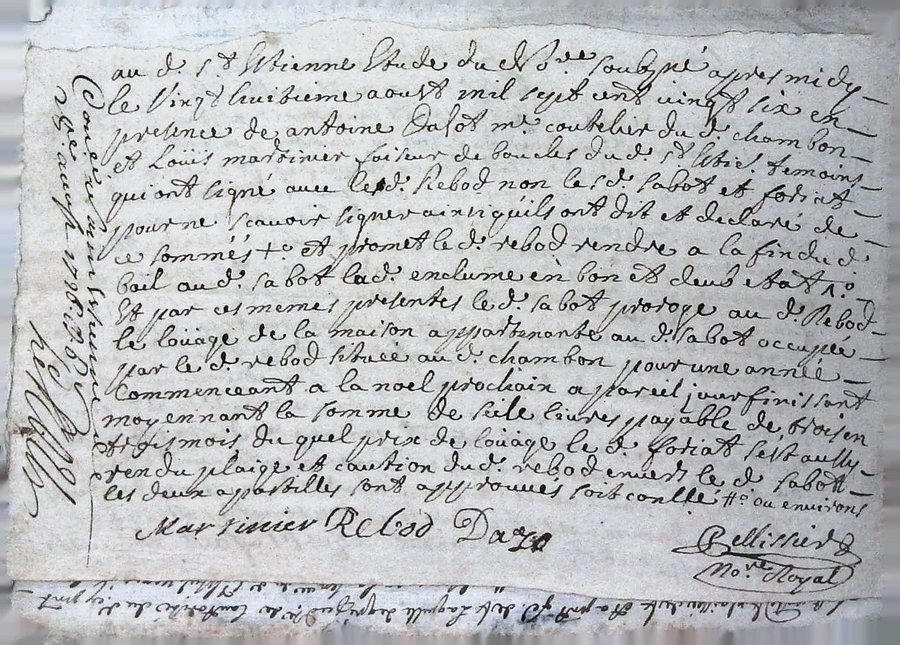 au d. s.t Etienne Etude du no.re soubzné apres midy
le vingt huitieme aoust mil sept cent vingt six en
presence de antoine Dasot m.e coutelier du d. chambon
et Louis martinier faiseur de boucles du d. s.t Etie. temoins
qui ont signé avec le d. Rebod non les d. sabot et foriat
pour ne scavoir signer ainsi qu'ils ont dit et declaré de
ce sommés +.o et promet le d. rebod rendre a la fin du d.
bail au d. sabot la d. enclume en bon et deub etat 1.o
Et par ces memes presentes le d. sabot proroge au d. Rebod
le loüage de la maison appartenante au d. sabot occupée
par le d. rebod située au d. chambon pour une année
Commenceant a la noel prochain a pareil jour finissant
moyennant la somme de seise livres payable de trois en
trois mois du quel prix de loüage le d. foriat s'est aussy
rendu plaige et caution du d. rebod envers le d. sabot
les deux apostilles sont approuvés soit conllé #.o ou environs
Martinier Rebod Dazo
Pellissier
No.re Royal
a S.t Etienne le
28e aoust 1726